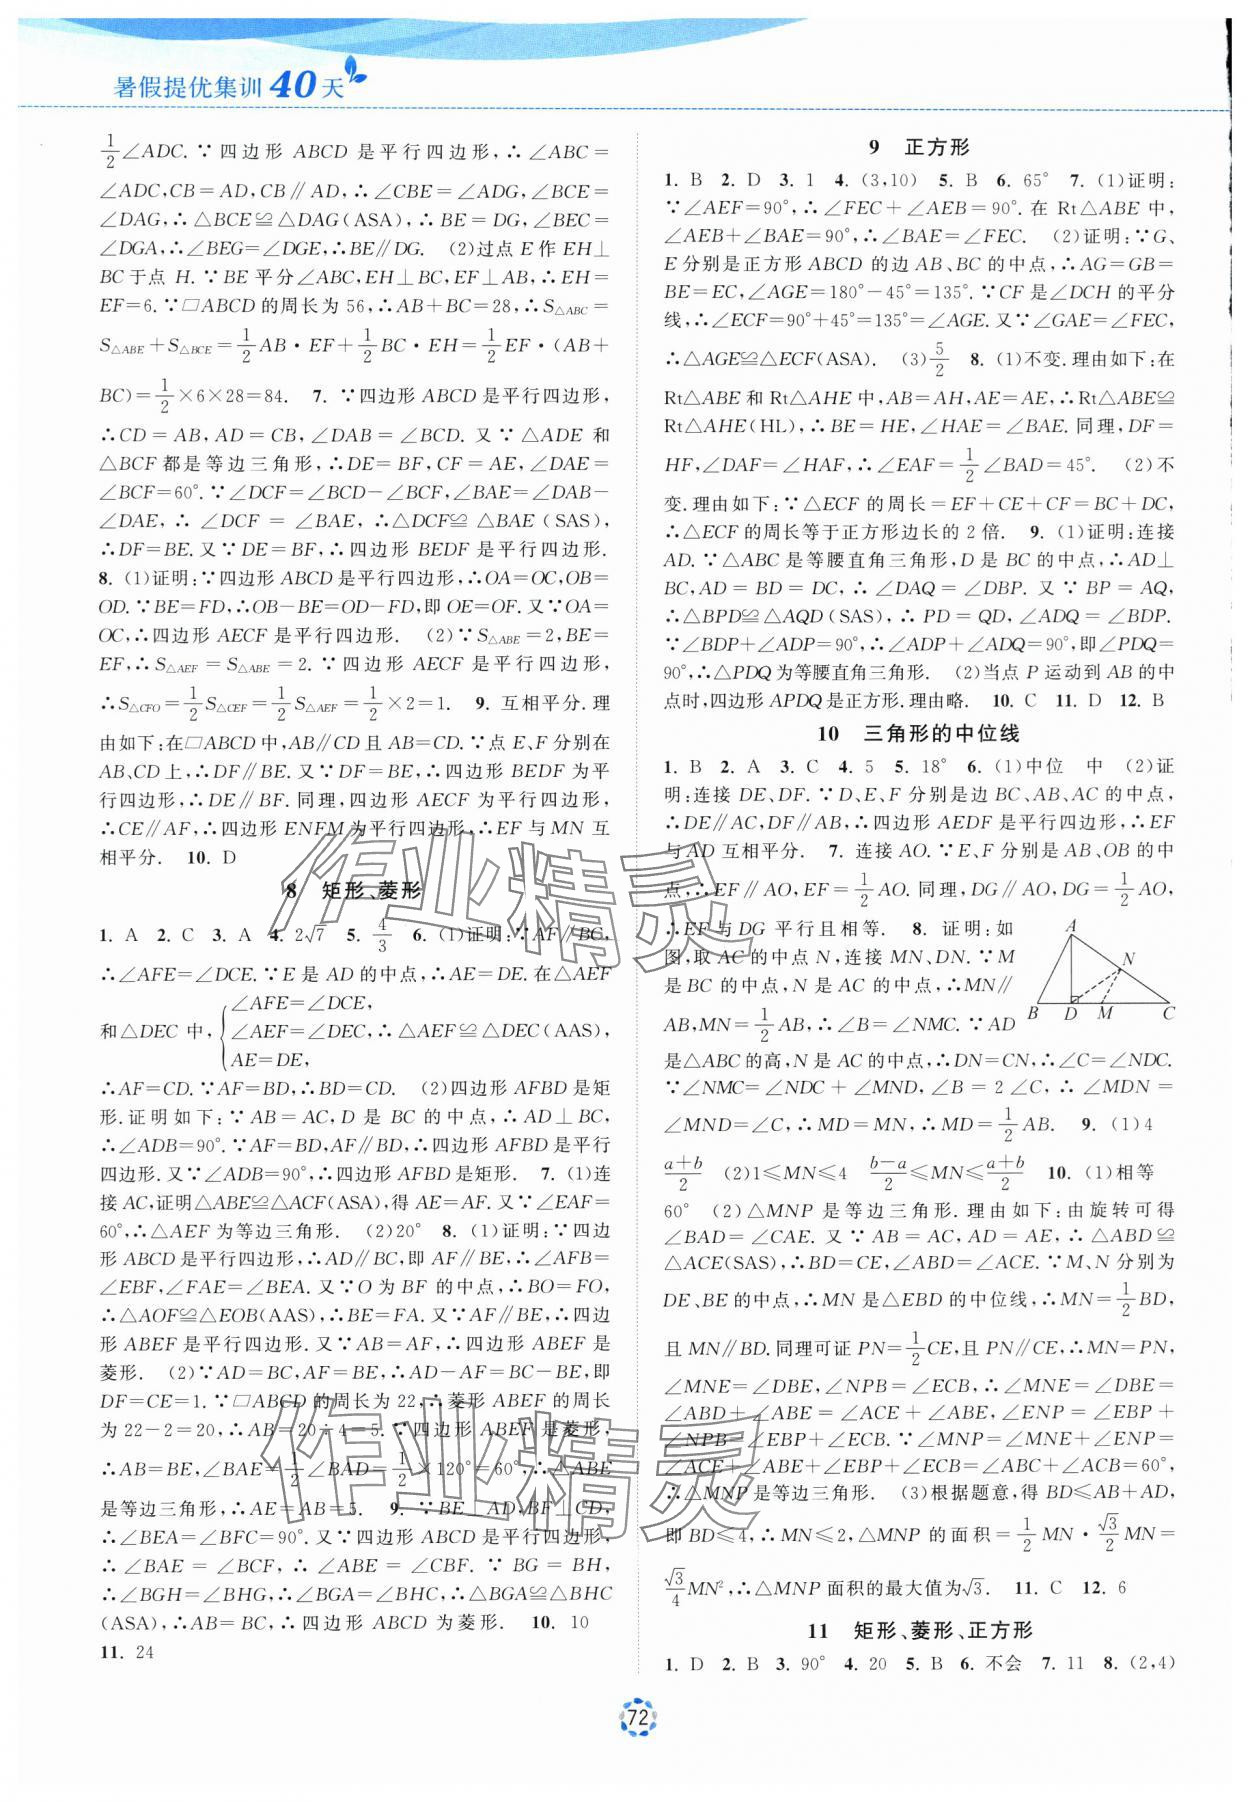 暑假提优集训40天
1/2∠ADC.∵四边形ABCD是平行四边形,∴∠ABC=
∠ADC,CB=AD,CB∥AD,∴∠CBE=∠ADG,∠BCE=
∠DAG,∴△BCE≌△DAG(ASA),∴BE=DG,∠BEC=
∠DGA,∴∠BEG=∠DGE,∴BE∥DG. (2)过点E作EH⊥
BC于点H.∵BE平分∠ABC,EH⊥BC,EF⊥AB,∴EH=
EF=6.∵□ABCD的周长为56,∴AB+BC=28,∴S△ABC=
S△ABE+S△BCE=1/2AB·EF+1/2BC·EH=1/2EF·(AB+
BC)=1/2×6×28=84. 7. ∵四边形ABCD是平行四边形,
∴CD=AB,AD=CB,∠DAB=∠BCD.又∵△ADE和
△BCF都是等边三角形,∴DE=BF,CF=AE,∠DAE=
∠BCF=60°.∵∠DCF=∠BCD-∠BCF,∠BAE=∠DAB-
∠DAE,∴∠DCF=∠BAE,∴△DCF≌△BAE(SAS),
∴DF=BE.又∵DE=BF,∴四边形BEDF是平行四边形.
8. (1)证明:∵四边形ABCD是平行四边形,∴OA=OC,OB=
OD.∵BE=FD,∴OB-BE=OD-FD,即OE=OF.又∵OA=
OC,∴四边形AECF是平行四边形. (2)∵S△ABE=2,BE=
EF,∴S△AEF=S△ABE=2.∵四边形AECF是平行四边形,
∴S△CFO=1/2S△CEF=1/2S△AEF=1/2×2=1. 9. 互相平分.理
由如下:在□ABCD中,AB∥CD且AB=CD.∵点E、F分别在
AB、CD上,∴DF∥BE.又∵DF=BE,∴四边形BEDF为平
行四边形,∴DE∥BF.同理,四边形AECF为平行四边形,
∴CE∥AF,∴四边形ENFM为平行四边形,∴EF与MN互
相平分. 10. D
8 矩形、菱形
1. A 2. C 3. A 4. 2√7 5. 4/3 6. (1)证明:∵AF∥BC,
∴∠AFE=∠DCE.∵E是AD的中点,∴AE=DE.在△AEF
∠AFE=∠DCE,
和△DEC中,{∠AEF=∠DEC,∴△AEF≌△DEC(AAS),
AE=DE,
∴AF=CD.∵AF=BD,∴BD=CD. (2)四边形AFBD是矩
形.证明如下:∵AB=AC,D是BC的中点,∴AD⊥BC,
∴∠ADB=90°.∵AF=BD,AF∥BD,∴四边形AFBD是平行
四边形.又∵∠ADB=90°,∴四边形AFBD是矩形. 7. (1)连
接AC,证明△ABE≌△ACF(ASA),得AE=AF.又∵∠EAF=
60°,∴△AEF为等边三角形. (2)20° 8. (1)证明:∵四边
形ABCD是平行四边形,∴AD∥BC,即AF∥BE,∴∠AFB=
∠EBF,∠FAE=∠BEA.又∵O为BF的中点,∴BO=FO,
∴△AOF≌△EOB(AAS),∴BE=FA.又∵AF∥BE,∴四边
形ABEF是平行四边形.又∵AB=AF,∴四边形ABEF是
菱形. (2)∵AD=BC,AF=BE,∴AD-AF=BC-BE,即
DF=CE=1.∵□ABCD的周长为22,∴菱形ABEF的周长
为22-2=20,∴AB=20÷4=5.∵四边形ABEF是菱形,
∴AB=BE,∠BAE=1/2∠BAD=1/2×120°=60°,∴△ABE
是等边三角形,∴AE=AB=5. 9. ∵BE⊥AD,BF⊥CD,
∴∠BEA=∠BFC=90°.又∵四边形ABCD是平行四边形,
∴∠BAE=∠BCF,∴∠ABE=∠CBF.∵BG=BH,
∴∠BGH=∠BHG,∴∠BGA=∠BHC,∴△BGA≌△BHC
(ASA),∴AB=BC,∴四边形ABCD为菱形. 10. 10
11. 24
9 正方形
1. B 2. D 3. 1 4. (3,10) 5. B 6. 65° 7. (1)证明:
∵∠AEF=90°,∴∠FEC+∠AEB=90°.在Rt△ABE中,
∠AEB+∠BAE=90°,∴∠BAE=∠FEC. (2)证明:∵G、
E分别是正方形ABCD的边AB、BC的中点,∴AG=GB=
BE=EC,∠AGE=180°-45°=135°.∵CF是∠DCH的平分
线,∴∠ECF=90°+45°=135°=∠AGE.又∵∠GAE=∠FEC,
∴△AGE≌△ECF(ASA). (3)5/2 8. (1)不变.理由如下:在
Rt△ABE和Rt△AHE中,AB=AH,AE=AE,∴Rt△ABE≌
Rt△AHE(HL),∴BE=HE,∠HAE=∠BAE.同理,DF=
HF,∠DAF=∠HAF,∴∠EAF=1/2∠BAD=45°. (2)不
变.理由如下:∵△ECF的周长=EF+CE+CF=BC+DC,
∴△ECF的周长等于正方形边长的2倍. 9. (1)证明:连接
AD.∵△ABC是等腰直角三角形,D是BC的中点,∴AD⊥
BC,AD=BD=DC,∴∠DAQ=∠DBP.又∵BP=AQ,
∴△BPD≌△AQD(SAS),∴PD=QD,∠ADQ=∠BDP.
∵∠BDP+∠ADP=90°,∴∠ADP+∠ADQ=90°,即∠PDQ=
90°,∴△PDQ为等腰直角三角形. (2)当点P运动到AB的中
点时,四边形APDQ是正方形.理由略. 10. C 11. D 12. B
10 三角形的中位线
1. B 2. A 3. C 4. 5 5. 18° 6. (1)中位 中 (2)证
明:连接DE、DF.∵D、E、F分别是边BC、AB、AC的中点,
∴DE∥AC,DF∥AB,∴四边形AEDF是平行四边形,∴EF
与AD互相平分. 7. 连接AO.∵E、F分别是AB、OB的中
点,∴EF∥AO,EF=1/2AO.同理,DG∥AO,DG=1/2AO,
∴EF与DG平行且相等. 8. 证明:如
图,取AC的中点N,连接MN、DN.∵M
是BC的中点,N是AC的中点,∴MN∥
AB,MN=1/2AB,∴∠B=∠NMC.∵AD
A
N
B D M C
是△ABC的高,N是AC的中点,∴DN=CN,∴∠C=∠NDC.
∵∠NMC=∠NDC+∠MND,∠B=2∠C,∴∠MDN=
∠MND=∠C,∴MD=MN,∴MD=1/2AB. 9. (1)4
a+b/2 (2)1≤MN≤4 b-a/2≤MN≤a+b/2 10. (1)相等
60° (2)△MNP是等边三角形.理由如下:由旋转可得
∠BAD=∠CAE.又∵AB=AC,AD=AE,∴△ABD≌
△ACE(SAS),∴BD=CE,∠ABD=∠ACE.∵M、N分别为
DE、BE的中点,∴MN是△EBD的中位线,∴MN=1/2BD,
且MN∥BD.同理可证PN=1/2CE,且PN∥CE,∴MN=PN,
∠MNE=∠DBE,∠NPB=∠ECB,∴∠MNE=∠DBE=
∠ABD+∠ABE=∠ACE+∠ABE,∠ENP=∠EBP+
∠NPB=∠EBP+∠ECB.∵∠MNP=∠MNE+∠ENP=
∠ACE+∠ABE+∠EBP+∠ECB=∠ABC+∠ACB=60°,
∴△MNP是等边三角形. (3)根据题意,得BD≤AB+AD,
即BD≤4,∴MN≤2,△MNP的面积=1/2MN·√3/2MN=
√3/4MN²,∴△MNP面积的最大值为√3. 11. C 12. 6
11 矩形、菱形、正方形
1. D 2. B 3. 90° 4. 20 5. B 6. 不会 7. 11 8. (2,4)
72
作业精灵
作业精灵